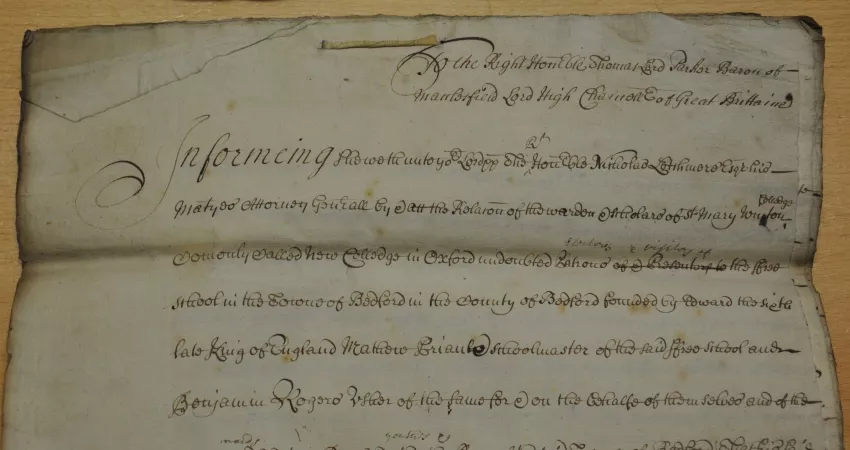 To the Right Honble Thomas Lord Parker Baron of
Maclesfield Lord High Chancellr of Great Brittaine
Rt
Informeing sheweth unto yor Lordpp the Honble Nicholas Lechmere Esqr his
Colledge
Matyes Attorney Genrall by & att the Relacon of the warden & scholars of St Mary Winton
Electors & visitors of
Comonly Called New Colledge in Oxford undoubted Patrons of & to the ffree
school in the Towne of Bedford in the County of Bedford founded by Edward the sixth
late King of England Mathew Priaulx schoolmaster of the said ffree school and
Benjamin Rogers Usher of the same for & on the behalfe of themselves and of the